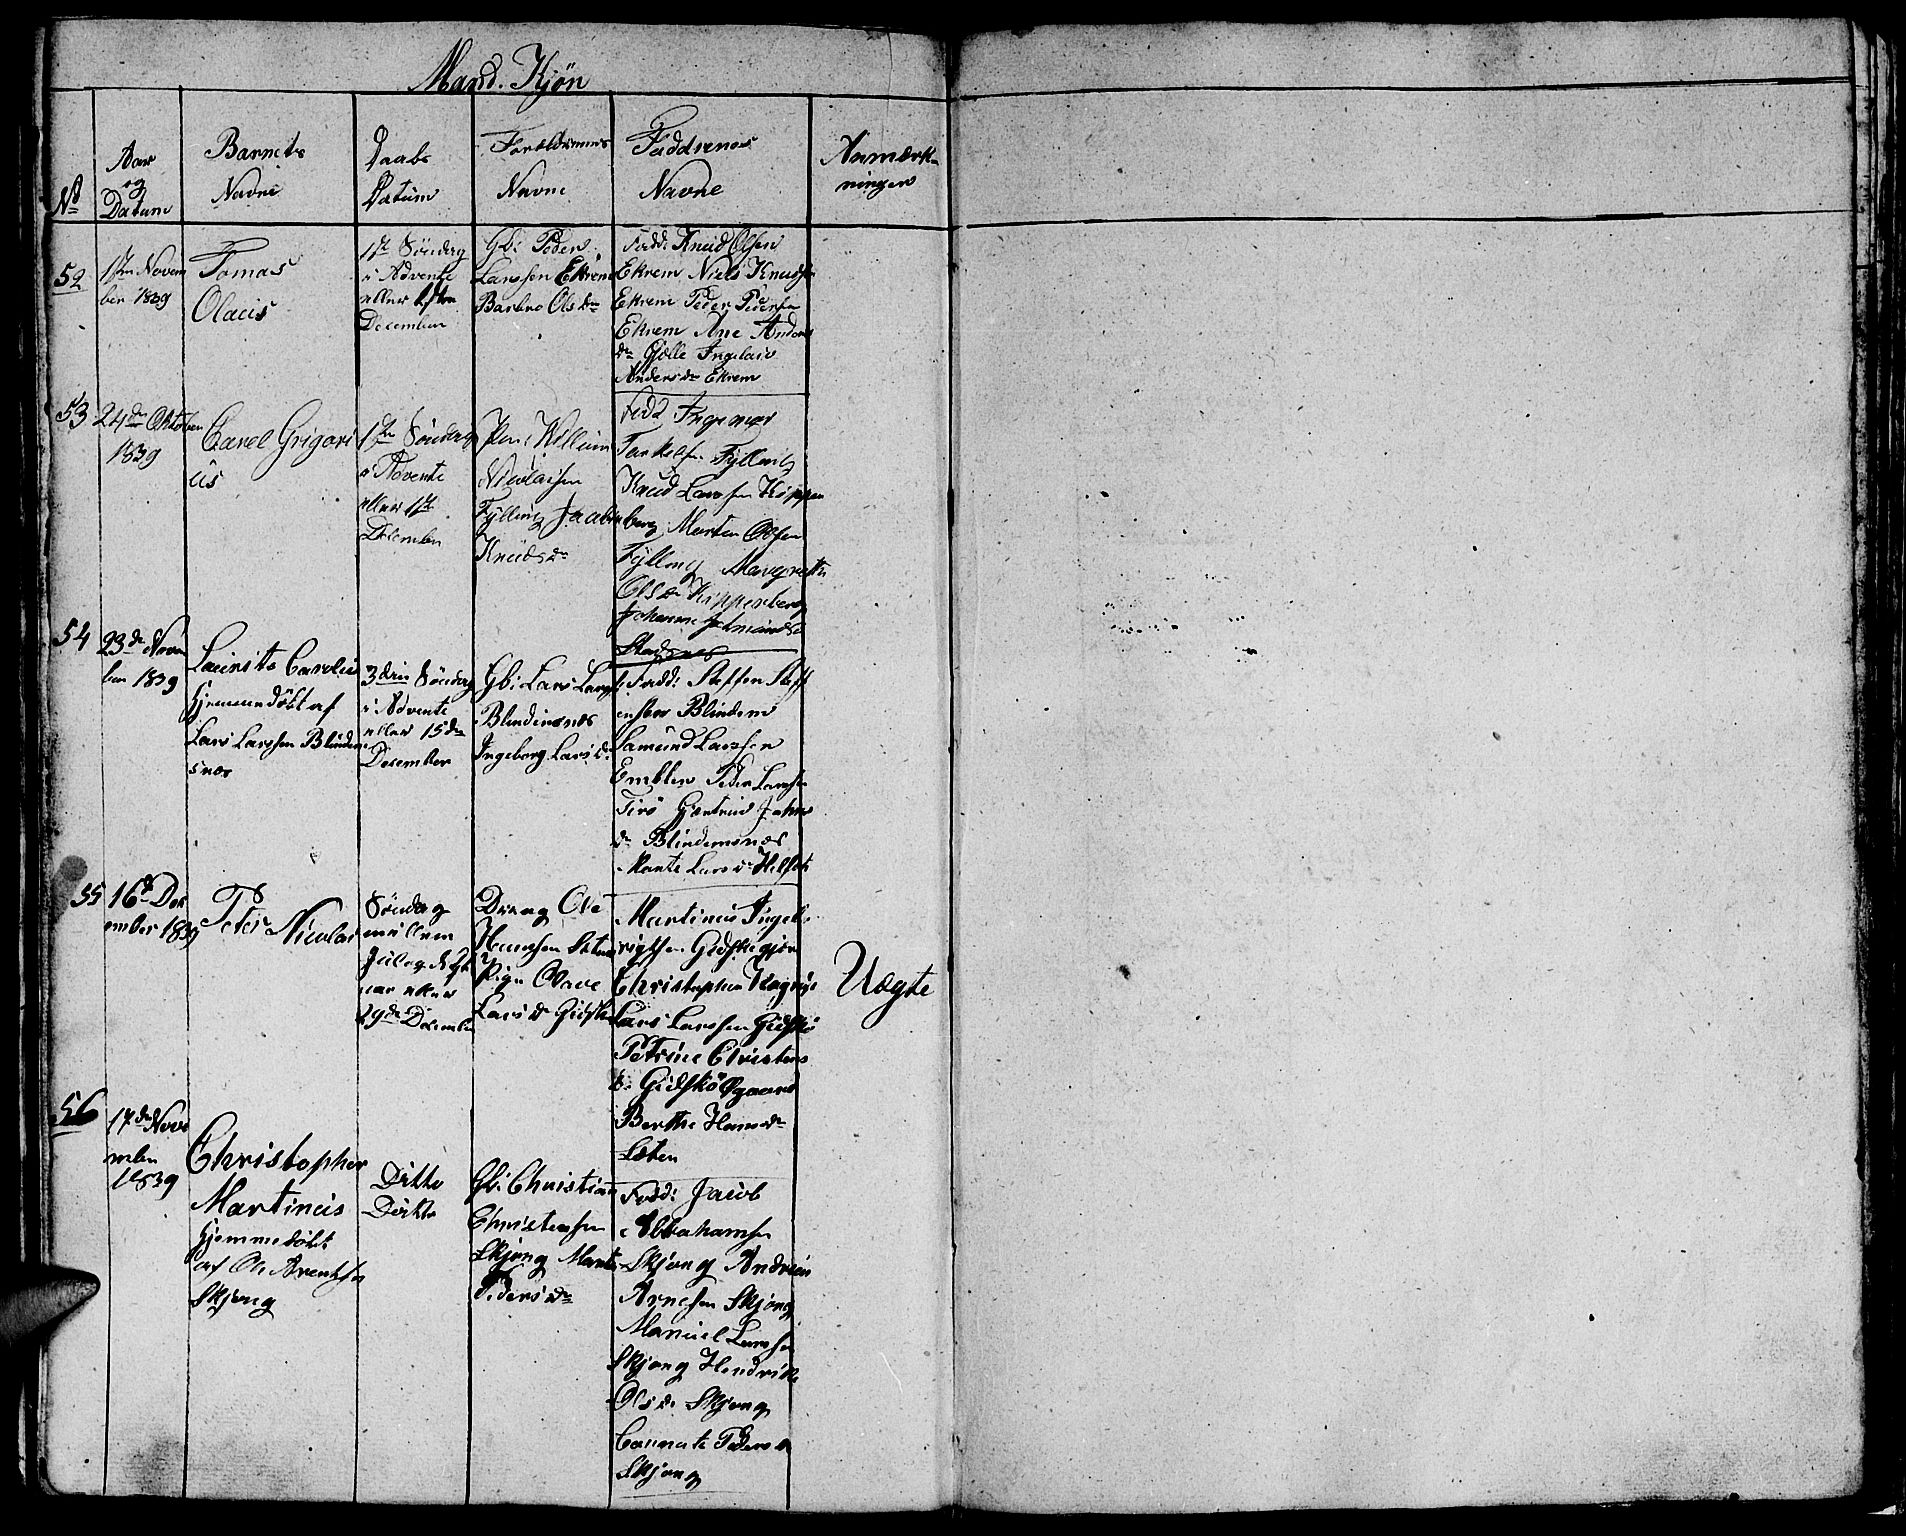 Mand. Kjøn
No
Aar
og
Datum
Barnets
Navne
Daabs
Datum
Forældrennes
Navne
Faddrenes
Navne
Anmærk-
ninger
52
1ste Novem
ber 1839
Tomas
Olaus
1ste Søndag
i Advente
eller 1ste
December
Gb: Peder
Larssen Ekrem
Barbro Olsdr
Fadd: Knud Olsen
Ekrem Niels Knudsen
Ekrem Peder Pedersen
Ekrem Ane Anders
dr Gjølle Ingeborg
Andersdr Ekrem
53
24de Oktober
1839
Carel Grigori
us
1ste Søndag
i Advente
eller 1ste
December
Pen: Willum
Nicolaisen
Fylling
Knudsdr
Fadd Ingemar
Torkelsen Fylling
Knud Larssen Kippen
berg Morten Olsen
Fylling Margrethe
Olsdr Kipperberg
Johanne
Stadsnes
54
23de Novem
ber 1839
Laurits Carolus
hjemmedøbt af
Lars Larssen Blindem
snæs
3die Søndag
i Advente
eller 15de
December
Gb: Lars Larss
Blindemsnæs
Ingeborg Larsdr
Fadd: Steffen Steff
ensen Blindem
Samund Larssen
Emblem Peder Larssen
Giertrud Johns
dr Blindemsnæs
Marte Larsdr
55
16de Dec
ember 1839
Peter Nicolai
Søndag
mellem
Jul og Nyt
aar eller
29de December
Dreng Ole
Hanssen Sæten
Pige Olave
Larsdr Gidske
Martinus Ingeb
rigtsen Gidske
Christopher
Lars Larssen Gidskø
Petrine Christens
dr Gidskø Øgaard
Berthe Hansdr
Sæten
Uægte
56
17de Nove
mber
1839
Christopher
Martinus
hjemmedøbt
af Ole Arentsen
Skjong
Ditto
Ditto
Gb: Christian
Christensen
Skjong Marte
Pedersdr
Fadd: Jacob
Abrahamsen
Skjong Andreas
Arnesen Skjong
Manuel Larssen
Skjong Hendrike
Olsdr Skjong
Pedersdr
Skjong